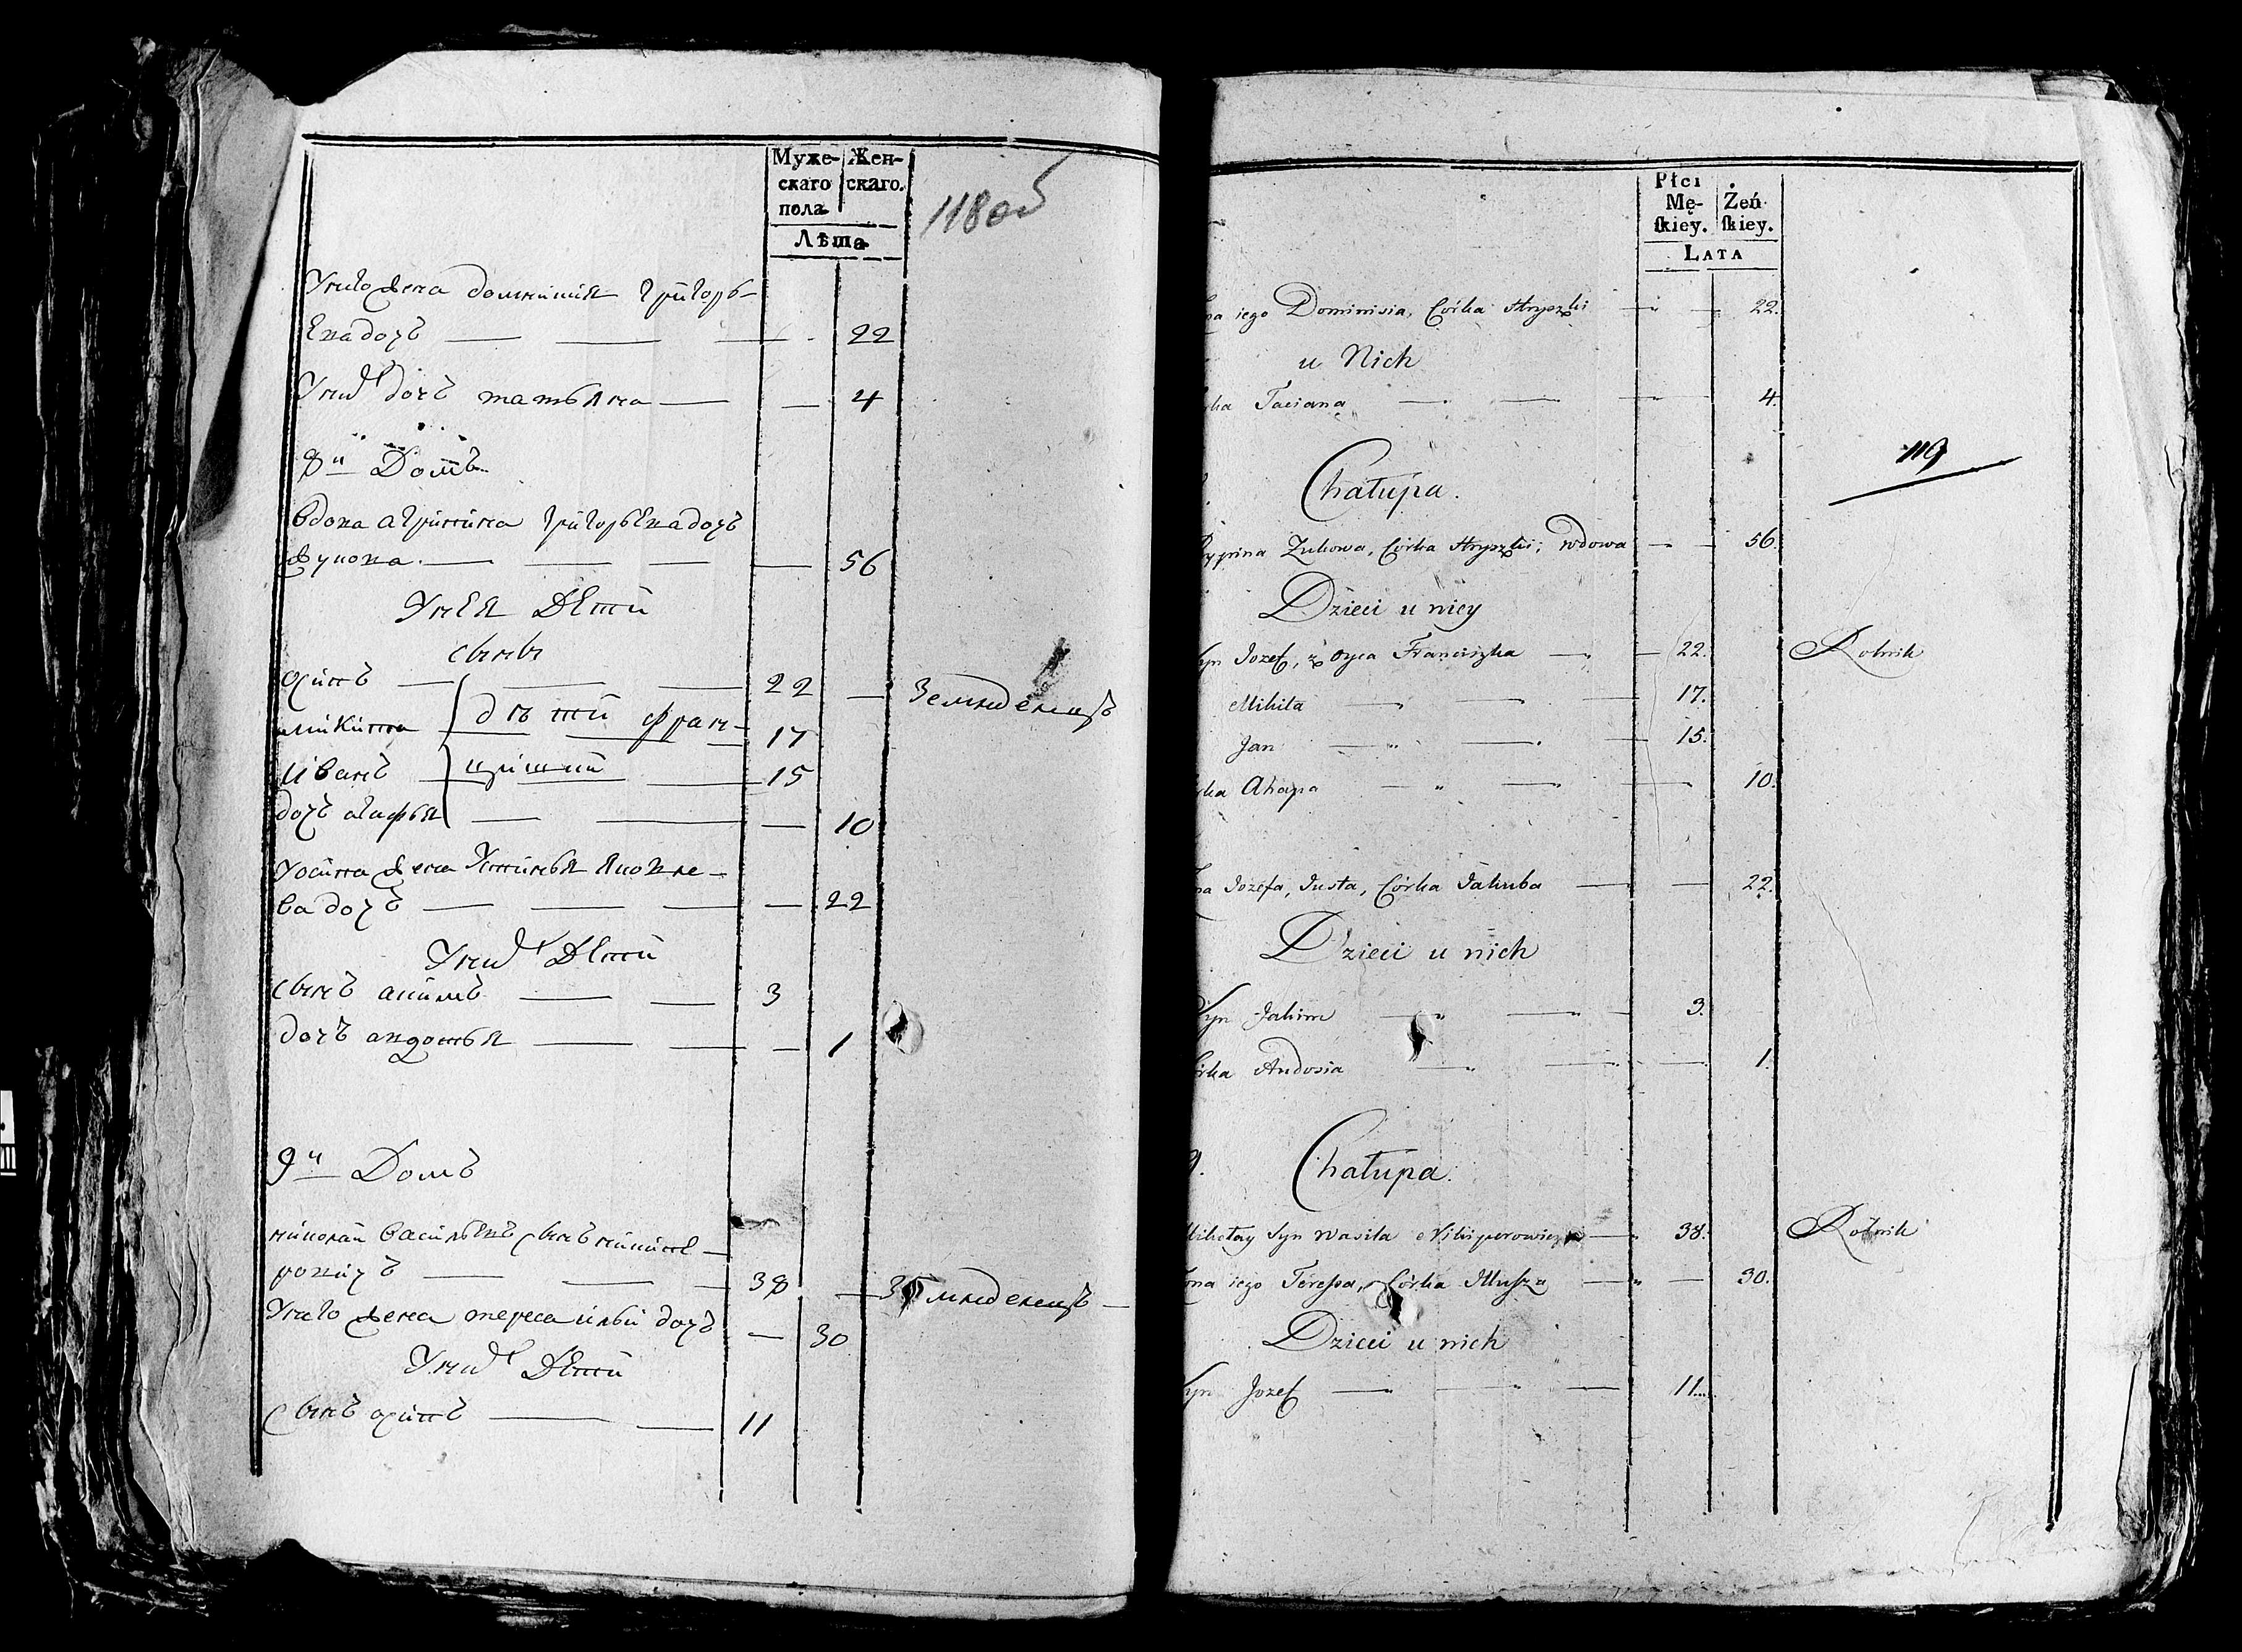 Муже-
скаго
пола
Жен-
скаго.
Лѣта
118 об
Унего жена домникия григорь-
Ева дочъ 22
Унихъ дочъ татьяна 4
8й Домъ
вдова агрипина григорьЕва дочъ
жукова 56
УнЕя ДЕти
сыны
осипъ 22 Земледелецъ
микита 17
дѣти фран-
Иванъ 15
цишки
дочъ агафья 10
Уосипа жена Устинья яковле-
ва дочъ 22
Унихъ ДЕти
сынъ акимъ 3
дочъ авдотья 1
9й Домъ
николай васильЕвъ сынъ никипѣ-
ровичъ 38 Земледелецъ
Унего жена тереса ильи дочъ 30
Унихъ ДЕти
сынъ осипъ 11
Płci
Mę-
ſkiey.
Żeń
ſkiey.
LATA
na iego Dominisia, Córka Hryszki 22.
u Nich
rka Taciana 4.
119
Chałupa.
ryppina Zukowa, Córka Hryszki; wdowa 56.
Dzieci u niey
Syn Jozef, z oyca Franciszka 22. Rolnik
Mikita 17.
Jan 15.
rka Ahapa 10.
na Jozefa, Justa, Córka Jakuba 22.
Dzieci u nich
Syn Jakim 3.
orka Audosia 1.
9. Chałupa.
Mikołay Syn Wasila Nikiperowicz 38. Rolnik
ona iego Teressa, Córka Illusza 30.
Dzieci u nich
Syn Jozef 11.